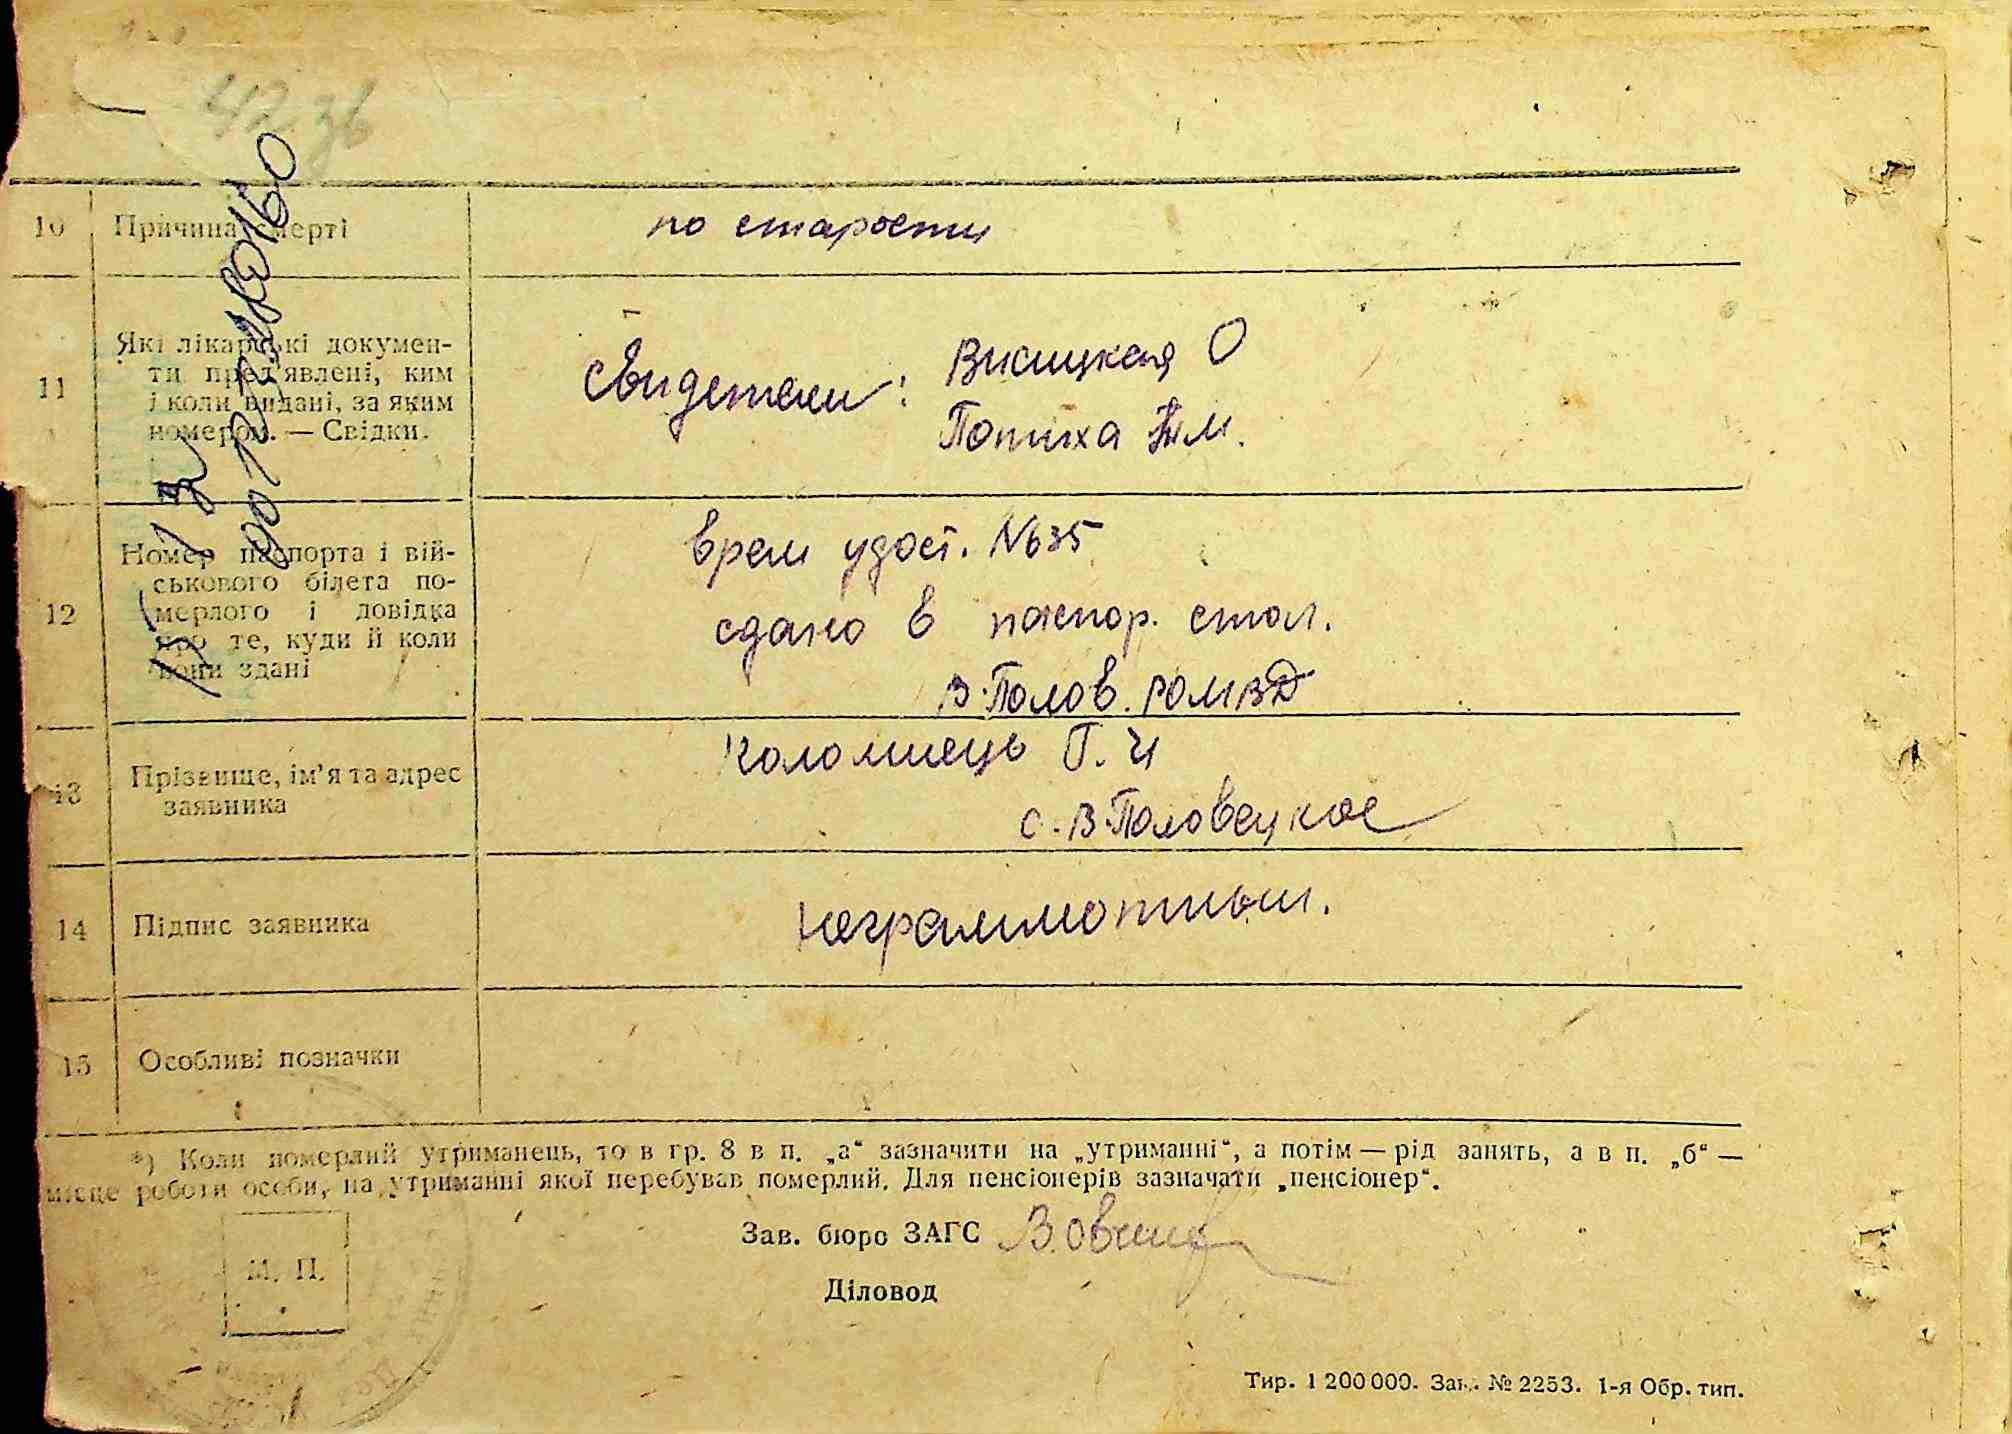 10 Причина смерті
по старости
11 Які лікарські докумен-
ти пред'явлені, ким
і коли видані, за яким
номером. — Свідки.
Свидетели: Висицкая О
Потиха М.
12 Номер паспорта і вій-
ськового білета по-
мерлого і довідка
про те, куди й коли
вони здані
врем удост. №35
сдано в паспор. стол.
В-Полов. РОМВД
13 Прізвище, ім'я та адрес
заявника
Коломиець П. И
с. В-Половецкое
14 Підпис заявника
неграммотный.
15 Особливі позначки
*) Коли померлий утриманець, то в гр. 8 в п. „а“ зазначити на „утриманні“, а потім — рід занять, а в п. „б“ —
місце роботи особи, на утриманні якої перебував померлий. Для пенсіонерів зазначати „пенсіонер“.
Зав. бюро ЗАГС
М. П.
Діловод
Тир. 1 200 000. Зак. № 2253. 1-я Обр. тип.